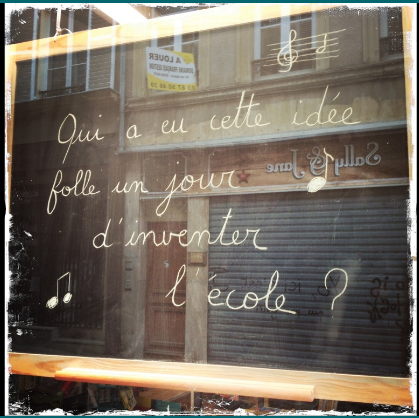 A LOUER
Qui a eu cette idée
Sally & Jane
folle un jour
d'inventer
l'école ?